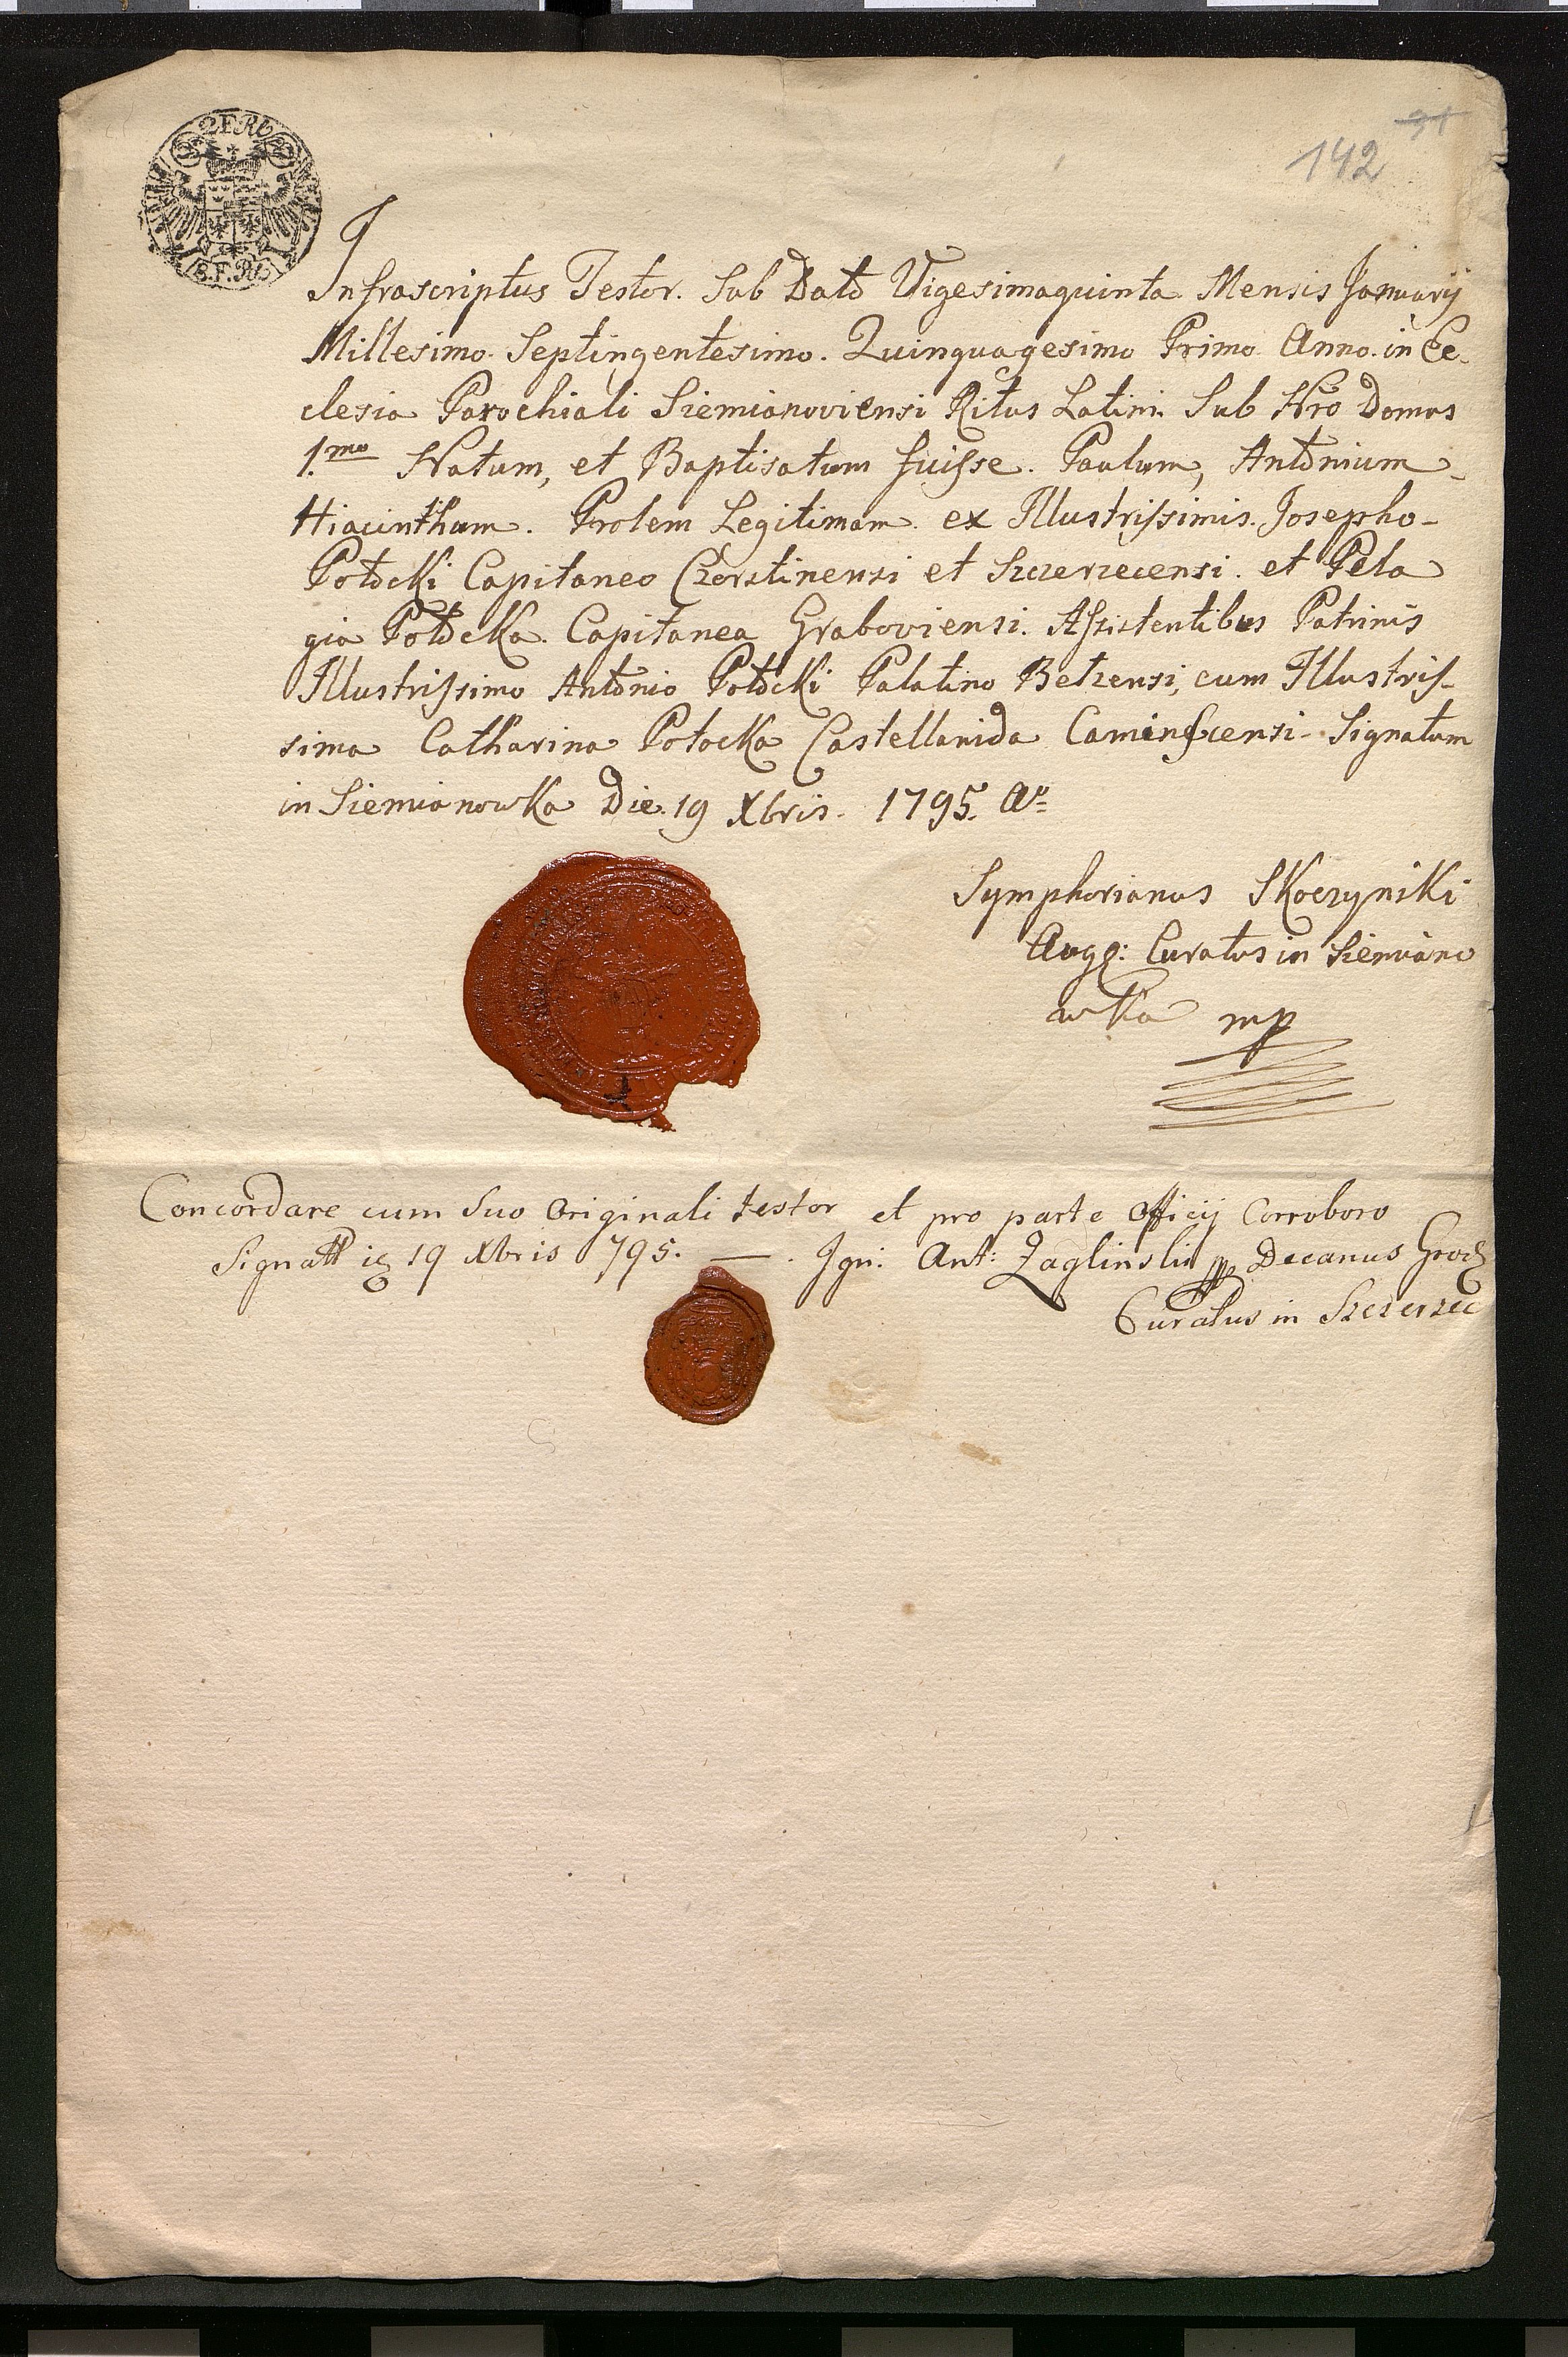 2F.Rl.
8.F.Rl.
31
142
Infrascriptus Testor. Sub Dato Vigesimaquinta Mensis Januarij
Millesimo. Septingentesimo. Quinquagesimo Primo Anno. in Ec-
clesia Parochiali Siemianoviensi Ritus Latini Sub Nro Domus
1.mo Natum, et Baptisatum fuisse. Paulum, Antonium
Hiacintham. Prolem Legitimam. ex Illustrissimis. Josepho-
Potocki Capitaneo Czorstinensi et Szczerzecensi. et Pela
gia Potocka. Capitanea Graboviensi. Assistentibus Patrinis
Illustrissimo Antonio Potocki Palatino Betzensi, cum Illustris-
sima Catharina Potocka Castellanida Camenecensi. Signatum
in Siemianowka Die. 19 Xbris. 1795. Ao
Symphorianus Skoczyniki
Augg: Curatus in Siemiano
wka mp
Concordare cum Suo Originali testor et pro parte Officij Corroboro
Signatt 19 Xbris 795. — . Ign: Ant: Zaglinski Decanus Grod
Curatus in Szczerzec